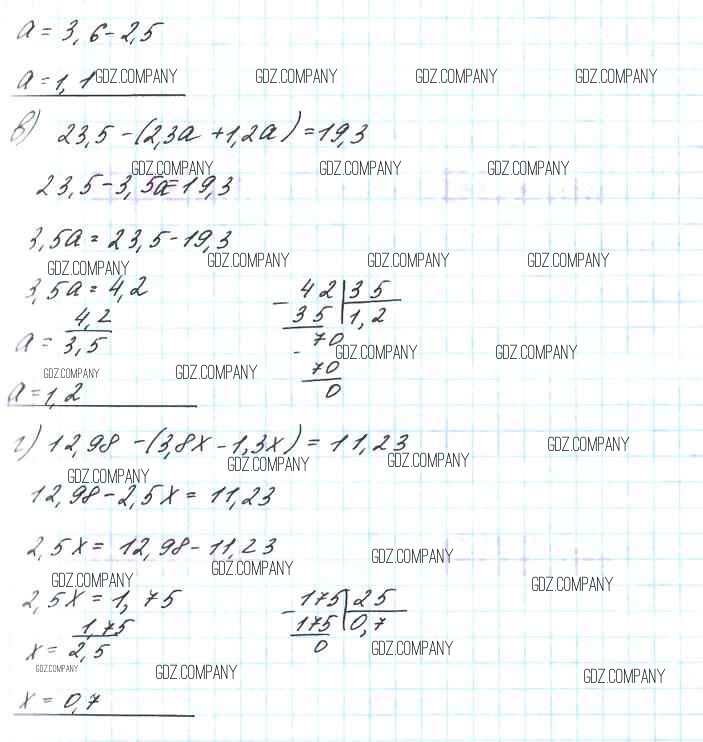 a = 3,6 - 2,5
a = 1,1 GDZ.COMPANY GDZ.COMPANY GDZ.COMPANY GDZ.COMPANY
в) 23,5 - (2,3a + 1,2a) = 19,3
GDZ.COMPANY GDZ.COMPANY GDZ.COMPANY
23,5 - 3,5a = 19,3
3,5a = 23,5 - 19,3
GDZ.COMPANY GDZ.COMPANY GDZ.COMPANY GDZ.COMPANY
3,5a = 4,2
a = 4,2/3,5
- 42 | 35
35 | 1,2
70
- 70
0
GDZ.COMPANY GDZ.COMPANY
GDZ.COMPANY GDZ.COMPANY
a = 1,2
г) 12,98 - (3,8x - 1,3x) = 11,23 GDZ.COMPANY
GDZ.COMPANY GDZ.COMPANY GDZ.COMPANY
12,98 - 2,5x = 11,23
2,5x = 12,98 - 11,23 GDZ.COMPANY
GDZ.COMPANY GDZ.COMPANY GDZ.COMPANY
2,5x = 1,75
x = 1,75/2,5
- 175 | 25
175 | 0,7
0
GDZ.COMPANY
GDZ.COMPANY GDZ.COMPANY GDZ.COMPANY
x = 0,7